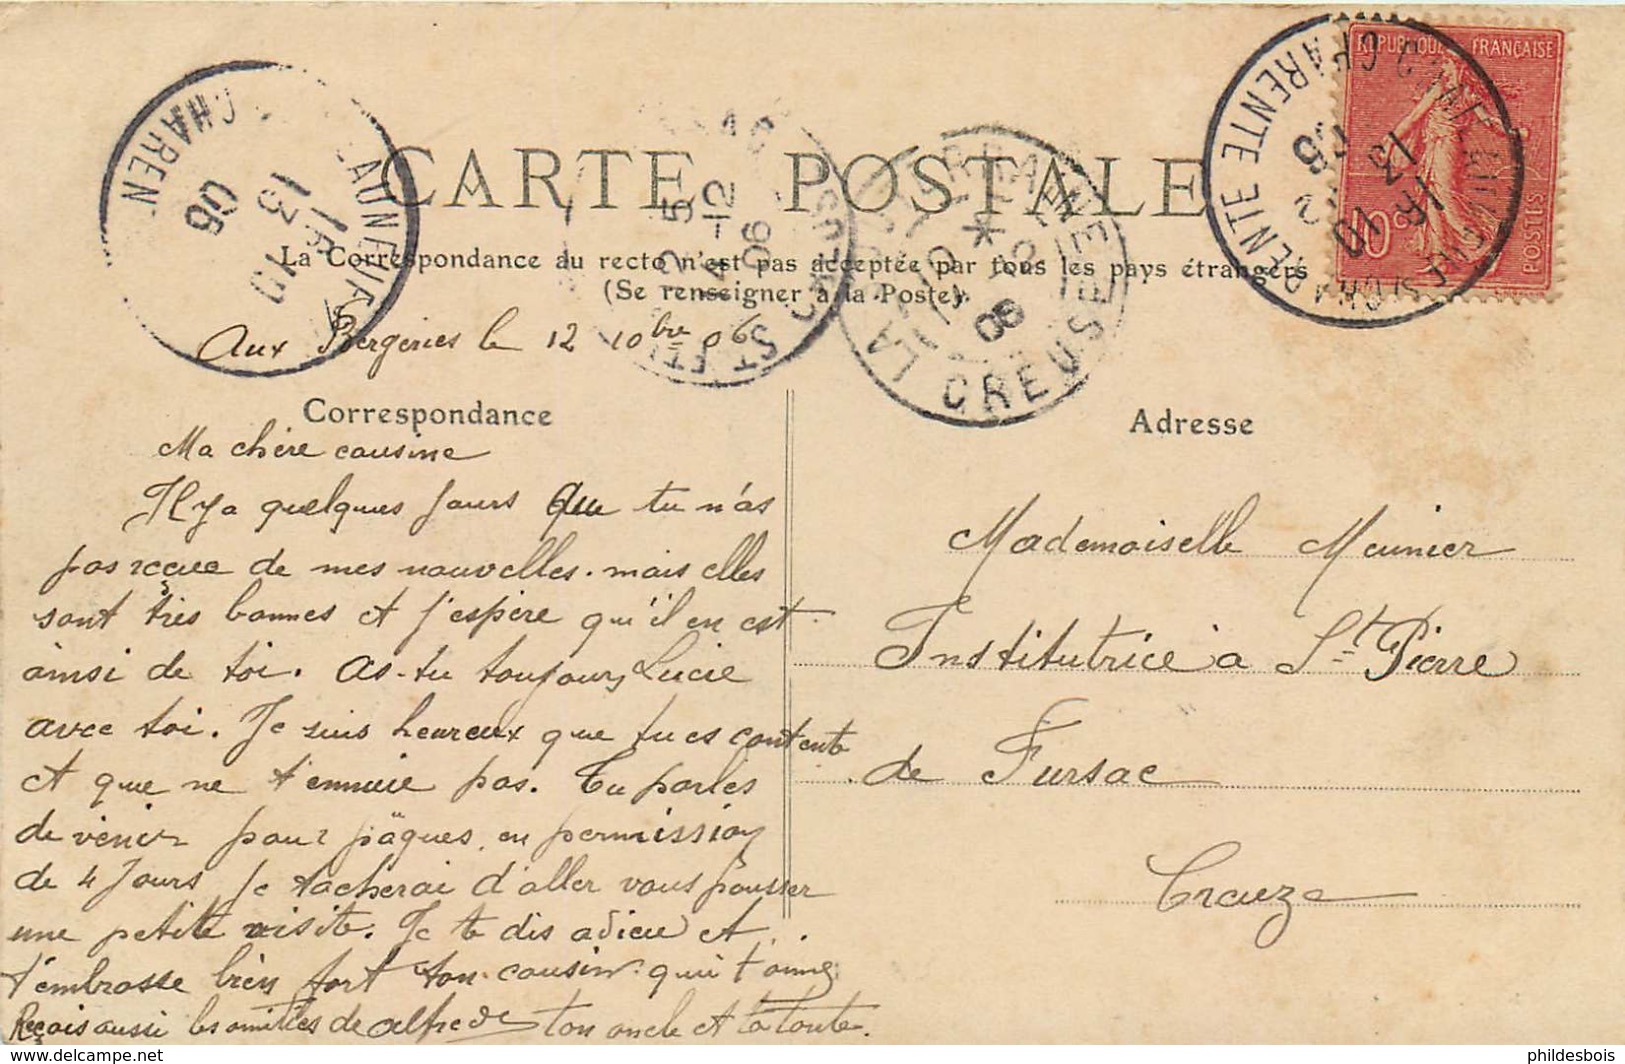 CARTE POSTALE
La Correspondance au recto n'est pas acceptée par tous les pays étrangers
(Se renseigner à la Poste).
REPUBLIQUE FRANÇAISE
10c
POSTES
CHARENTE
CHAREN
13 10
06
LA
CREUSE
06
Aux Bergeries le 12 10bre 06
Correspondance
Ma chère cousine
Il y a quelques jours que tu n'as
pas reçue de mes nouvelles. mais elles
sont très bonnes et j'espère qu'il en est
ainsi de toi. As-tu toujours Lucie
avec toi. Je suis heureux que tu es contente
et que ne t'ennuie pas. Tu parles
de venir pour pâques, en permission
de 4 Jours je tacherai d'aller vous pousser
une petite visite. Je te dis adieu et
t'embrasse bien fort ton cousin qui t'aime
Reçois aussi les amitiés de alfred ton oncle et ta tante.
Adresse
Mademoiselle Meunier
Institutrice à St Pierre
de Fursac
Creuze
phildesbois